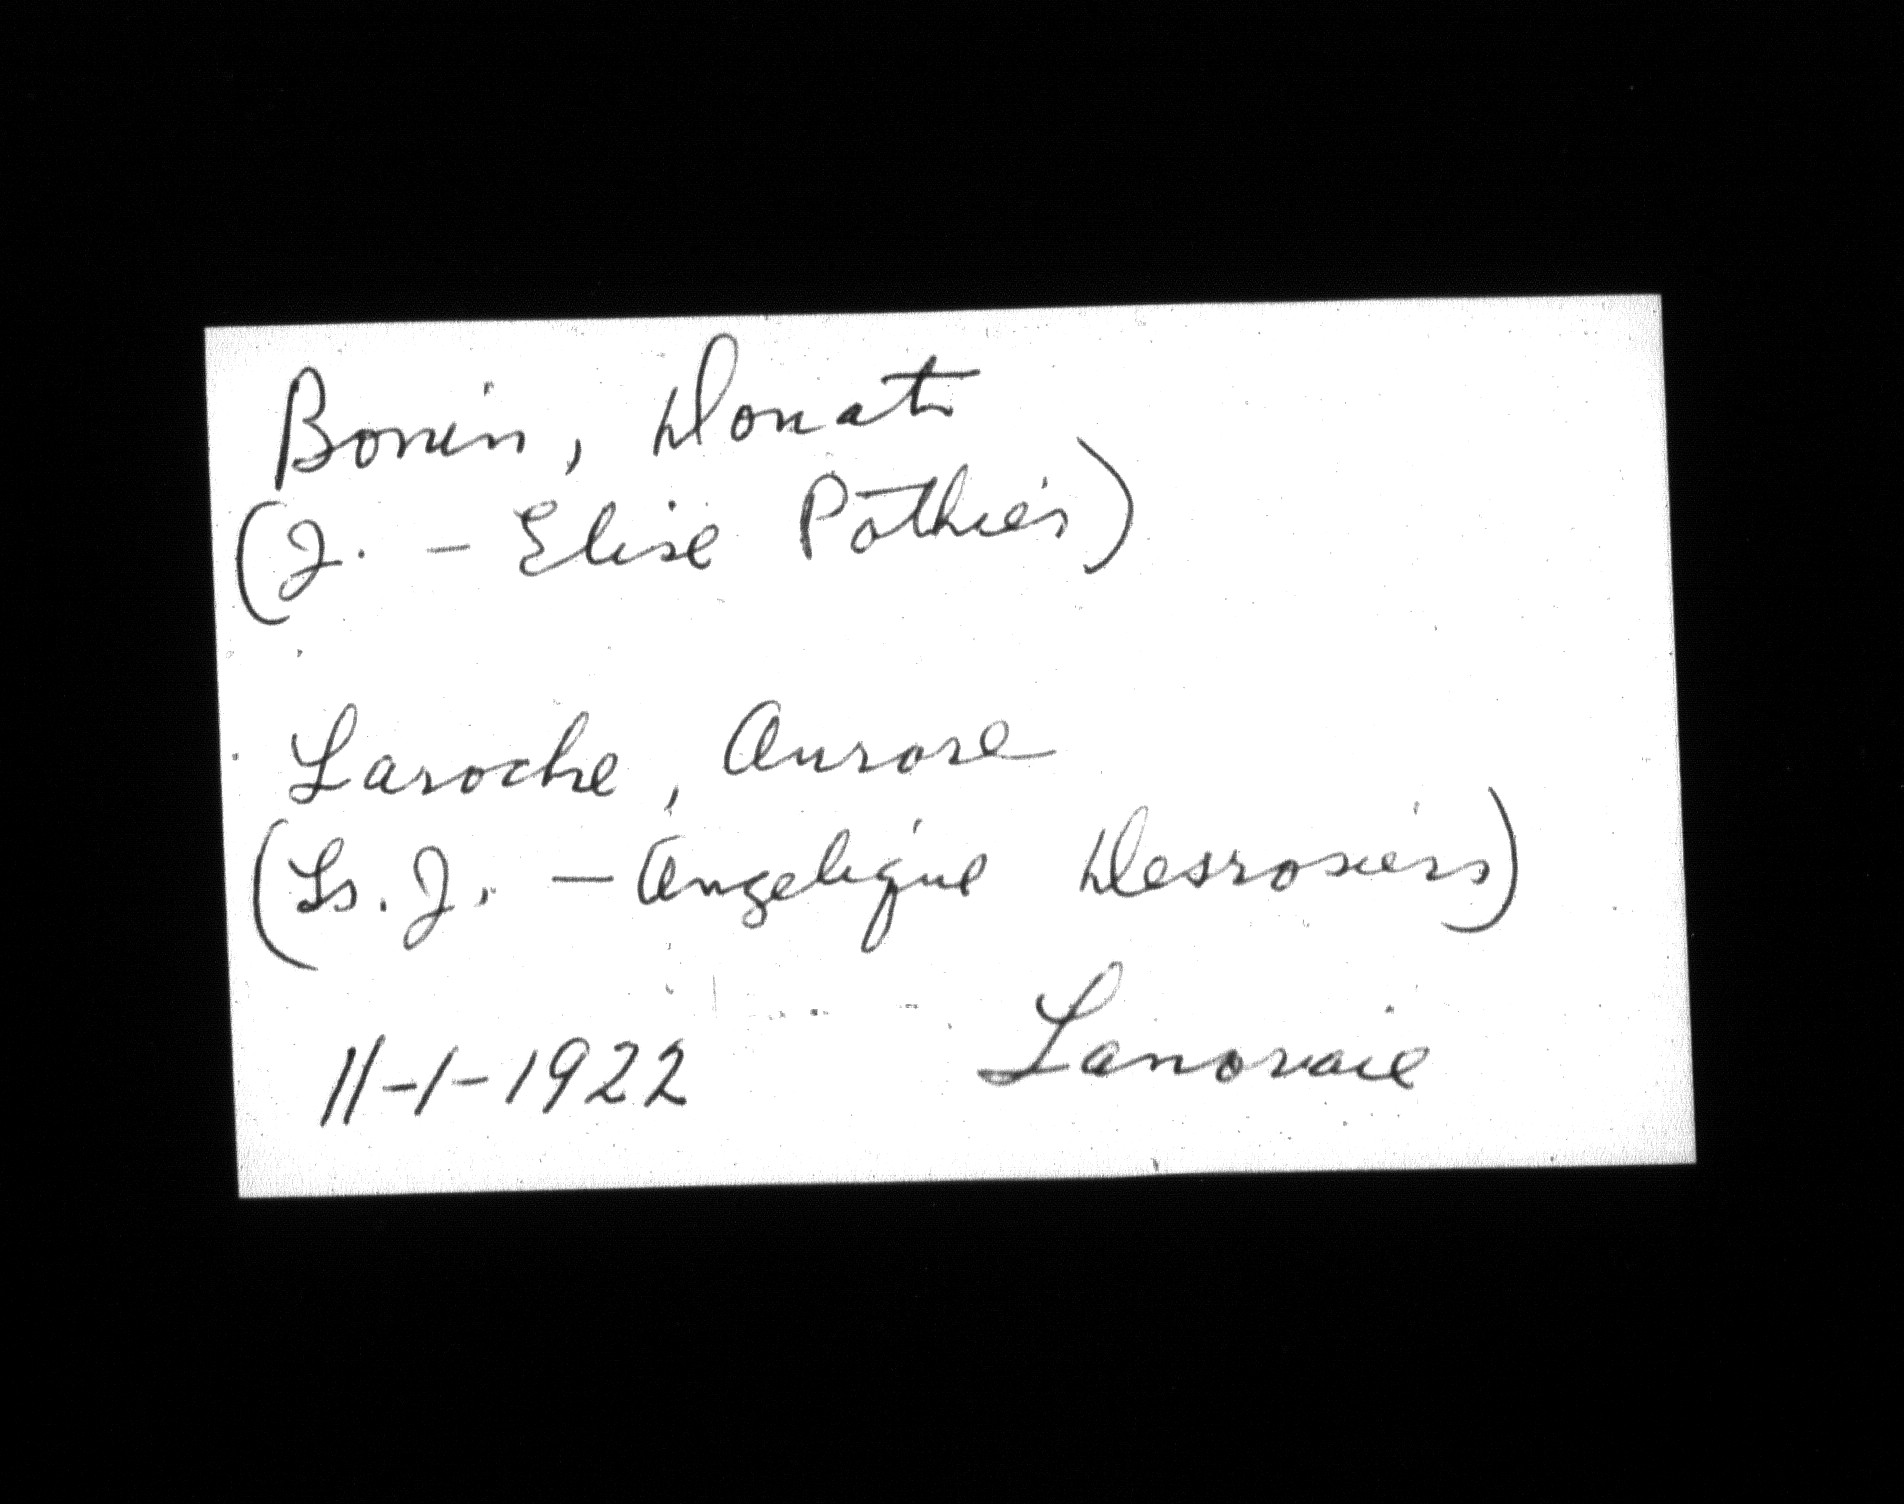 Bonin, Donat
(J. - Elise Pothier)
Laroche, Aurore
(Ls. J. - Angelique Desrosiers)
11-1-1922 Lanoraie